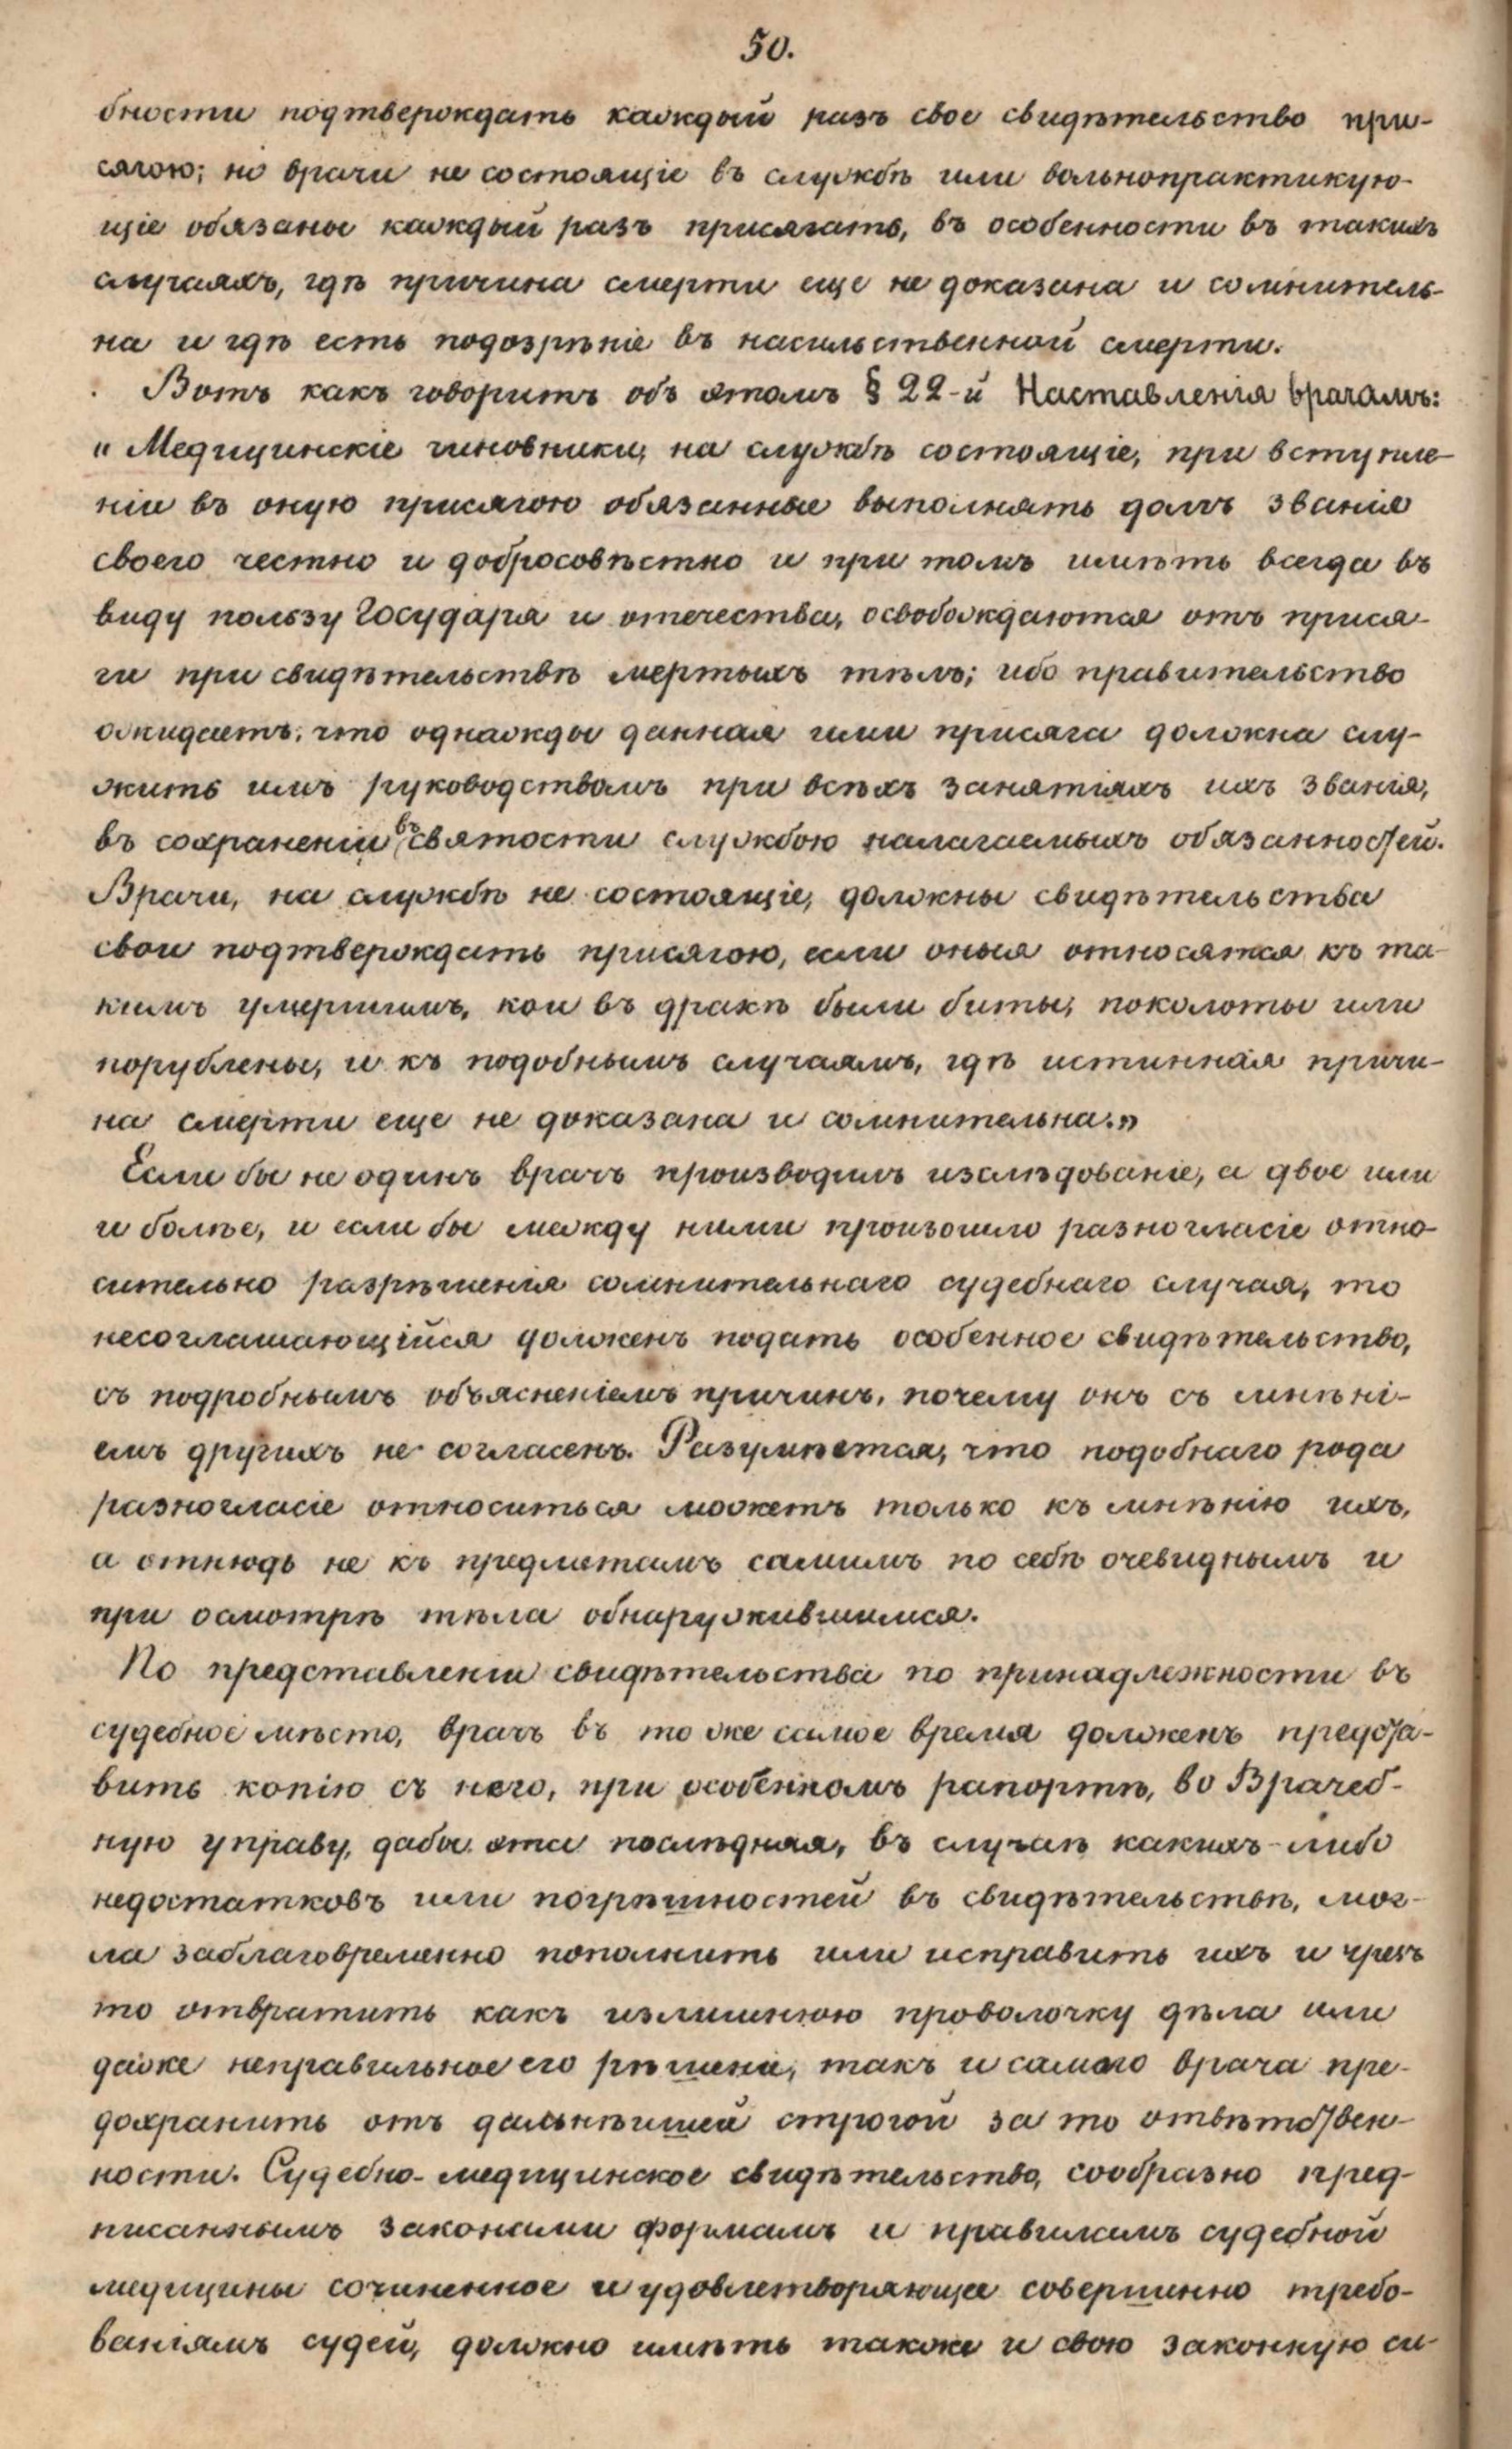 50.
бности подтверждать каждый разъ свое свидѣтельство при-
сягою; но врачи не состоящіе въ службѣ или вольнопрактикую-
щіе обязаны каждый разъ присягать, въ особенности въ такихъ
случаяхъ, гдѣ причина смерти еще не доказана и сомнитель-
на и гдѣ есть подозрѣніе въ насильственной смерти.
Вотъ какъ говоритъ объ этомъ § 22-й Наставленія врачамъ:
"Медицинскіе чиновники, на службѣ состоящіе, при вступле-
ніи въ оную присягою обязанные выполнять долгъ званія
своего честно и добросовѣстно и при томъ имѣть всегда въ
виду пользу Государя и отечества, освобождаются отъ прися-
ги при свидѣтельствѣ мертвыхъ тѣлъ; ибо правительство
ожидаетъ, что однажды данная ими присяга должна слу-
жить имъ руководствомъ при всѣхъ занятіяхъ ихъ званія,
въ сохраненіи въ святости службою налагаемыхъ обязанностей.
Врачи, на службѣ не состоящіе, должны свидѣтельства
свои подтверждать присягою, если оныя относятся къ та-
кимъ умершимъ, кои въ дракѣ были биты, поколоты или
порублены, и къ подобнымъ случаямъ, гдѣ истинная причи-
на смерти еще не доказана и сомнительна.„
Если бы не одинъ врачъ производилъ изслѣдованіе, а двое или
и болѣе, и если бы между ними произошло разногласіе отно-
сительно разрѣшенія сомнительнаго судебнаго случая, то
несоглашающійся долженъ подать особенное свидѣтельство,
съ подробнымъ объясненіемъ причинъ, почему онъ съ мнѣні-
емъ другихъ не согласенъ. Разумѣется, что подобнаго рода
разногласіе относиться можетъ только къ мнѣнію ихъ,
а отнюдь не къ предметамъ самимъ по себѣ очевиднымъ и
при осмотрѣ тѣла обнаружившимся.
По представленіи свидѣтельства по принадлежности въ
судебное мѣсто, врачъ въ то же самое время долженъ предста-
вить копію съ него, при особенномъ рапортѣ, во Врачеб-
ную управу, дабы эта послѣдняя, въ случаѣ какихъ-либо
недостатковъ или погрѣшностей въ свидѣтельствѣ, мог-
ла заблаговременно пополнить или исправить ихъ и чрезъ
то отвратить какъ излишнюю проволочку дѣла или
даже неправильное его рѣшеніе, такъ и самого врача пре-
дохранить отъ дальнѣйшей строгой за то отвѣтствен-
ности. Судебно-медицинское свидѣтельство, сообразно пред-
писаннымъ законами формамъ и правиламъ судебной
медицины сочиненное и удовлетворяющее совершенно требо-
ваніямъ судей, должно имѣть также и свою законную си-